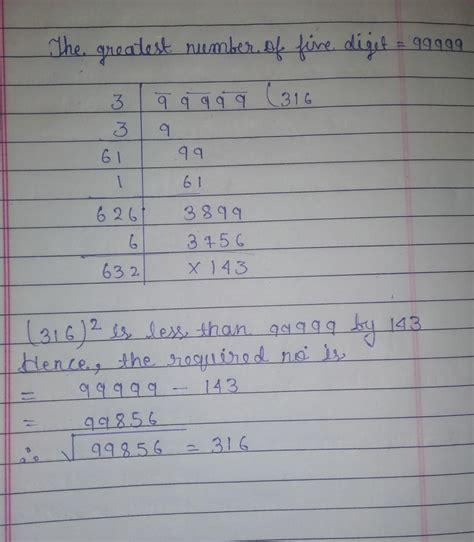 The greatest number of five digit = 99999
3 9 99 99 (316
3 9
61 99
1 61
626 3899
6 3756
632 × 143
(316)² is less than 99999 by 143
Hence, the required no is
= 99999 - 143
= 99856
∴ √99856 = 316